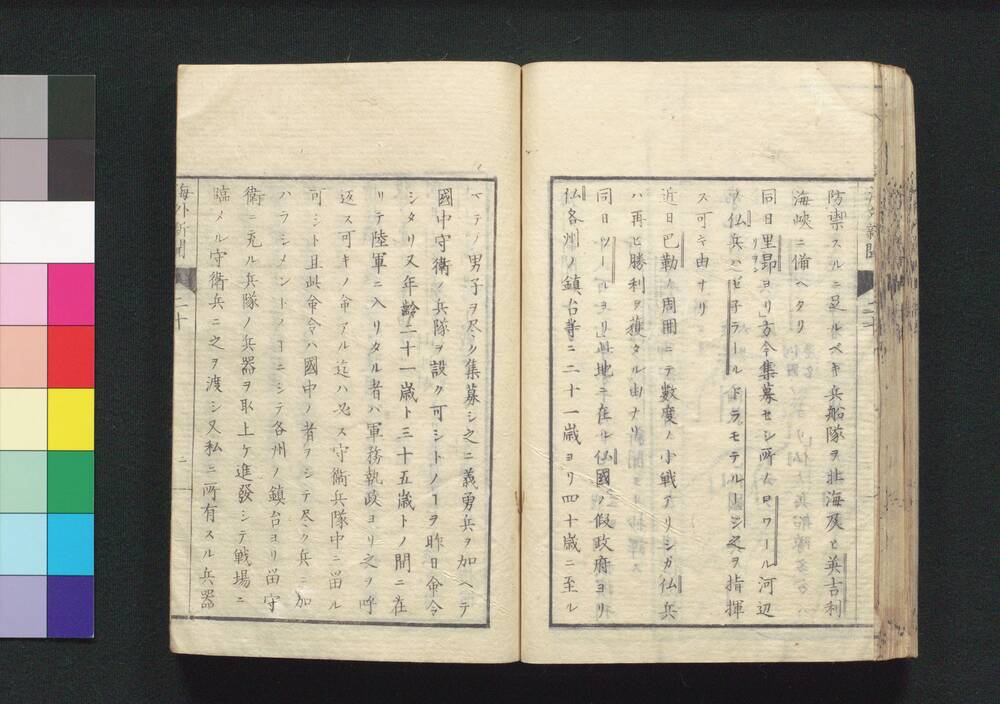 防禦スルニ足ルベキ兵船隊ヲ北海及ヒ英吉利
海峡ニ備ヘタリ
同日里昂ヨリ」方今集募セシ所ノロワール河辺
ノ仏兵ハゼ子ラールドラモテルージ之ヲ指揮
ス可キ由ナリ
近日巴勒ノ周囲ニテ數度ノ小戦アリシガ仏兵
ハ再ヒ勝利ヲ獲タル由ナリ
同日ツールヨリ」此地ニ在ル仏國ノ假政府ヨリ
仏各州ノ鎮台等ニ二十一歳ヨリ四十歳ニ至ル
マテノ男子ヲ尽ク集募シ之ニ義勇兵ヲ加ヘテ
國中守衛ノ兵隊ヲ設ク可シトノヿヲ昨日命令
シタリ又年齢二十一歳ト三十五歳トノ間ニ在
リテ陸軍ニ入リタル者ハ軍務執政ヨリ之ヲ呼
返ス可キノ命アル迄ハ必ス守衛兵隊中ニ畄ル
可シト且此命令ハ國中ノ者ヲシテ尽ク兵ニ加
ハラシメントノヿニシテ各州ノ鎮台ヨリ畄守
衛ニ充ル兵隊ノ兵器ヲ取上ケ進發シテ戦場ニ
臨メル守衛兵ニ之ヲ渡シ又私ニ所有スル兵器
海外新聞
二十
二